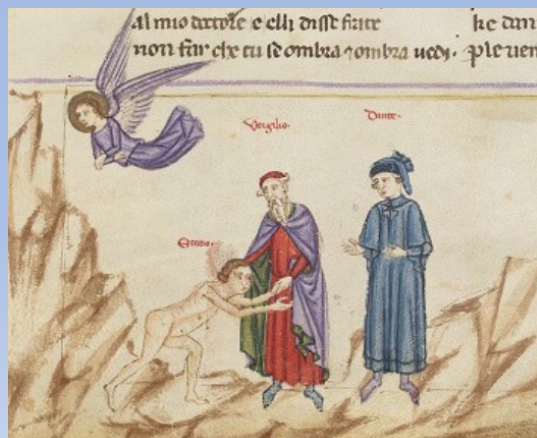 al mio dottore e elli disse frate
non far che tu se ombra ⁊ ombra uedi.
ke dan
ple uen
Vergilio.
Dante.
Statio.